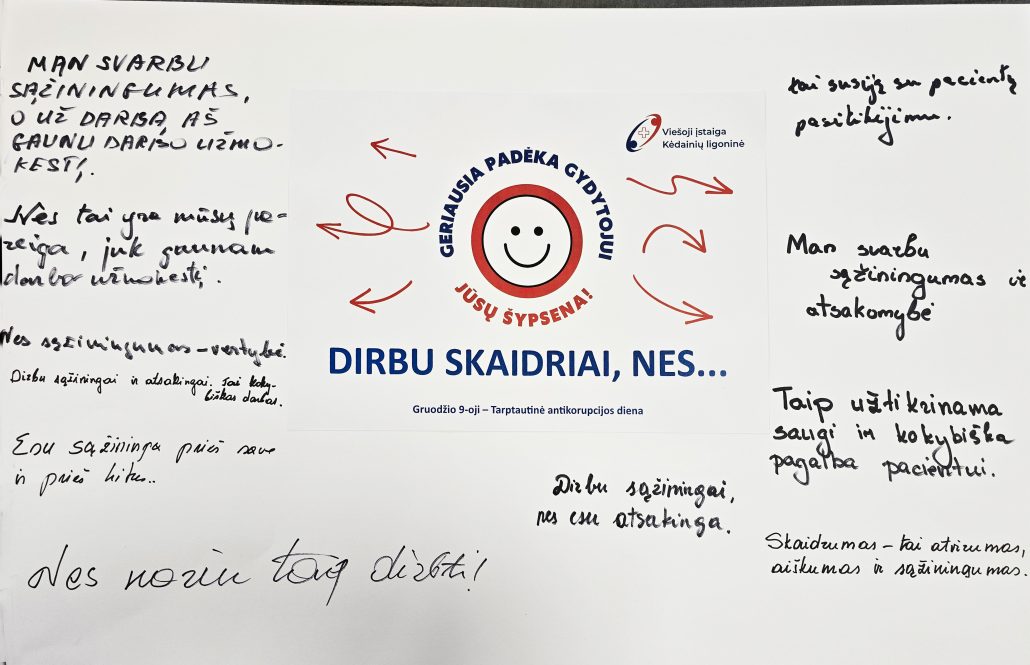 MAN SVARBU
SĄŽININGUMAS,
O UŽ DARBĄ AŠ
GAUNU DARBO UŽMO-
KESTĮ.
Nes tai yra mūsų pa-
reiga, juk gaunam
darbo užmokestį.
Nes sąžiningumas – vertybė.
Dirbu sąžiningai ir atsakingai. Tai koky-
biškas darbas.
Esu sąžininga prieš save
ir prieš kitus..
Nes noriu taip dirbti!
Viešoji įstaiga
Kėdainių ligoninė
GERIAUSIA PADĖKA GYDYTOJUI
JŪSŲ ŠYPSENA!
DIRBU SKAIDRIAI, NES...
Gruodžio 9-oji – Tarptautinė antikorupcijos diena
Dirbu sąžiningai,
nes esu atsakinga.
tai susiję su pacientų
pasitikėjimu.
Man svarbu
sąžiningumas ir
atsakomybė
Taip užtikrinama
saugi ir kokybiška
pagalba pacientui.
Skaidrumas – tai atvirumas,
aiškumas ir sąžiningumas.